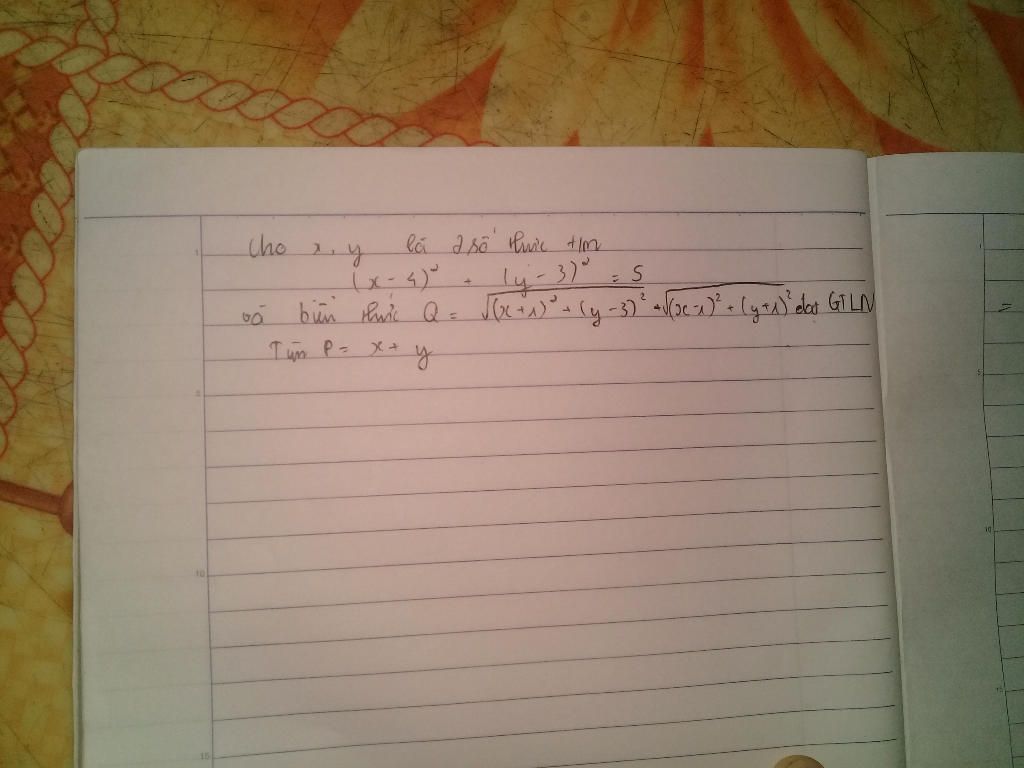 Cho x, y là 2 số thực t/m
(x - 4)² + (y - 3)² = 5
và biểu thức Q = √(x+1)² + (y-3)² + √(x-1)² + (y+1)² đạt GTLN
Tìm P = x + y